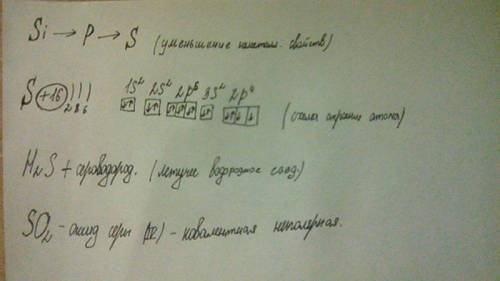 Si → P → S (уменьшение металл. свойств)
S +16 ) ) ) 2 8 6 1S² 2S² 2p⁶ 3S² 2p⁴ (схема строение атома)
H₂S + сероводород. (летучее водородное соед.)
SO₂ - оксид серы (IV) - ковалентная неполярная.